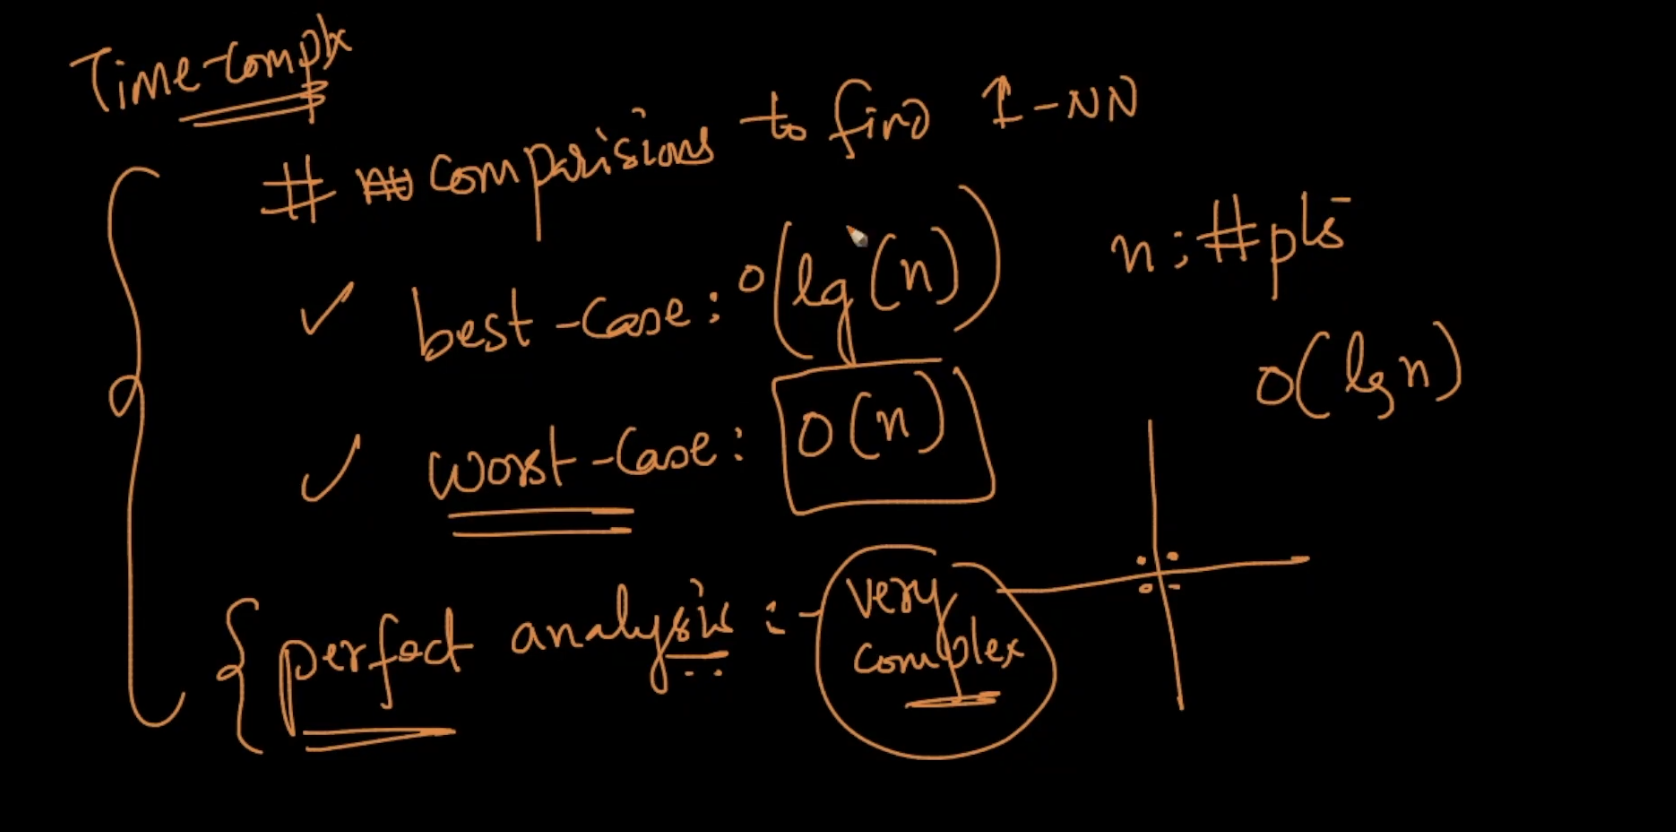 Time-Complx
# comparisions to find 1-NN
best-case: O(lg(n))
n: #pts
O(lg n)
worst-case: O(n)
{perfect analysis :- very
complex